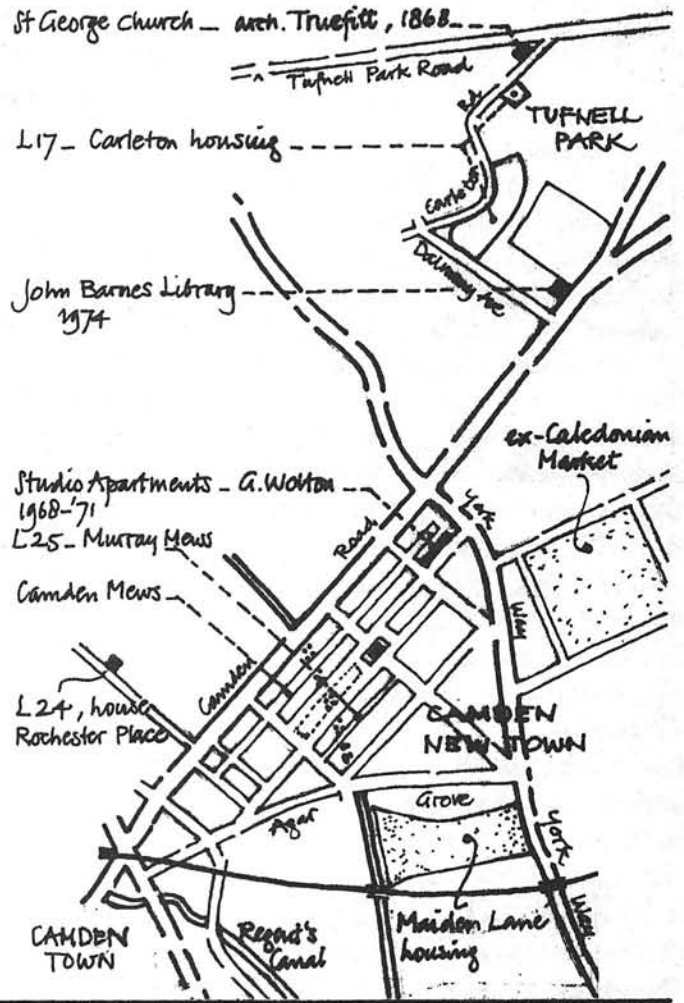 St George Church _ arch. Truefitt, 1868
Tufnell Park Road
Rd
TUFNELL
PARK
L17_ Carleton housing
Carleton
Dalmeny Ave
John Barnes Library
1974
ex-Caledonian
Market
Studio Apartments _ G. Wolton
1968-'71
York
L25_ Murray Mews
Road
Camden Mews
Way
Camden
L24, house
Rochester Place
CAMDEN
NEW TOWN
Grove
Agar
York
Way
Maiden Lane
housing
Regent's
Canal
CAMDEN
TOWN